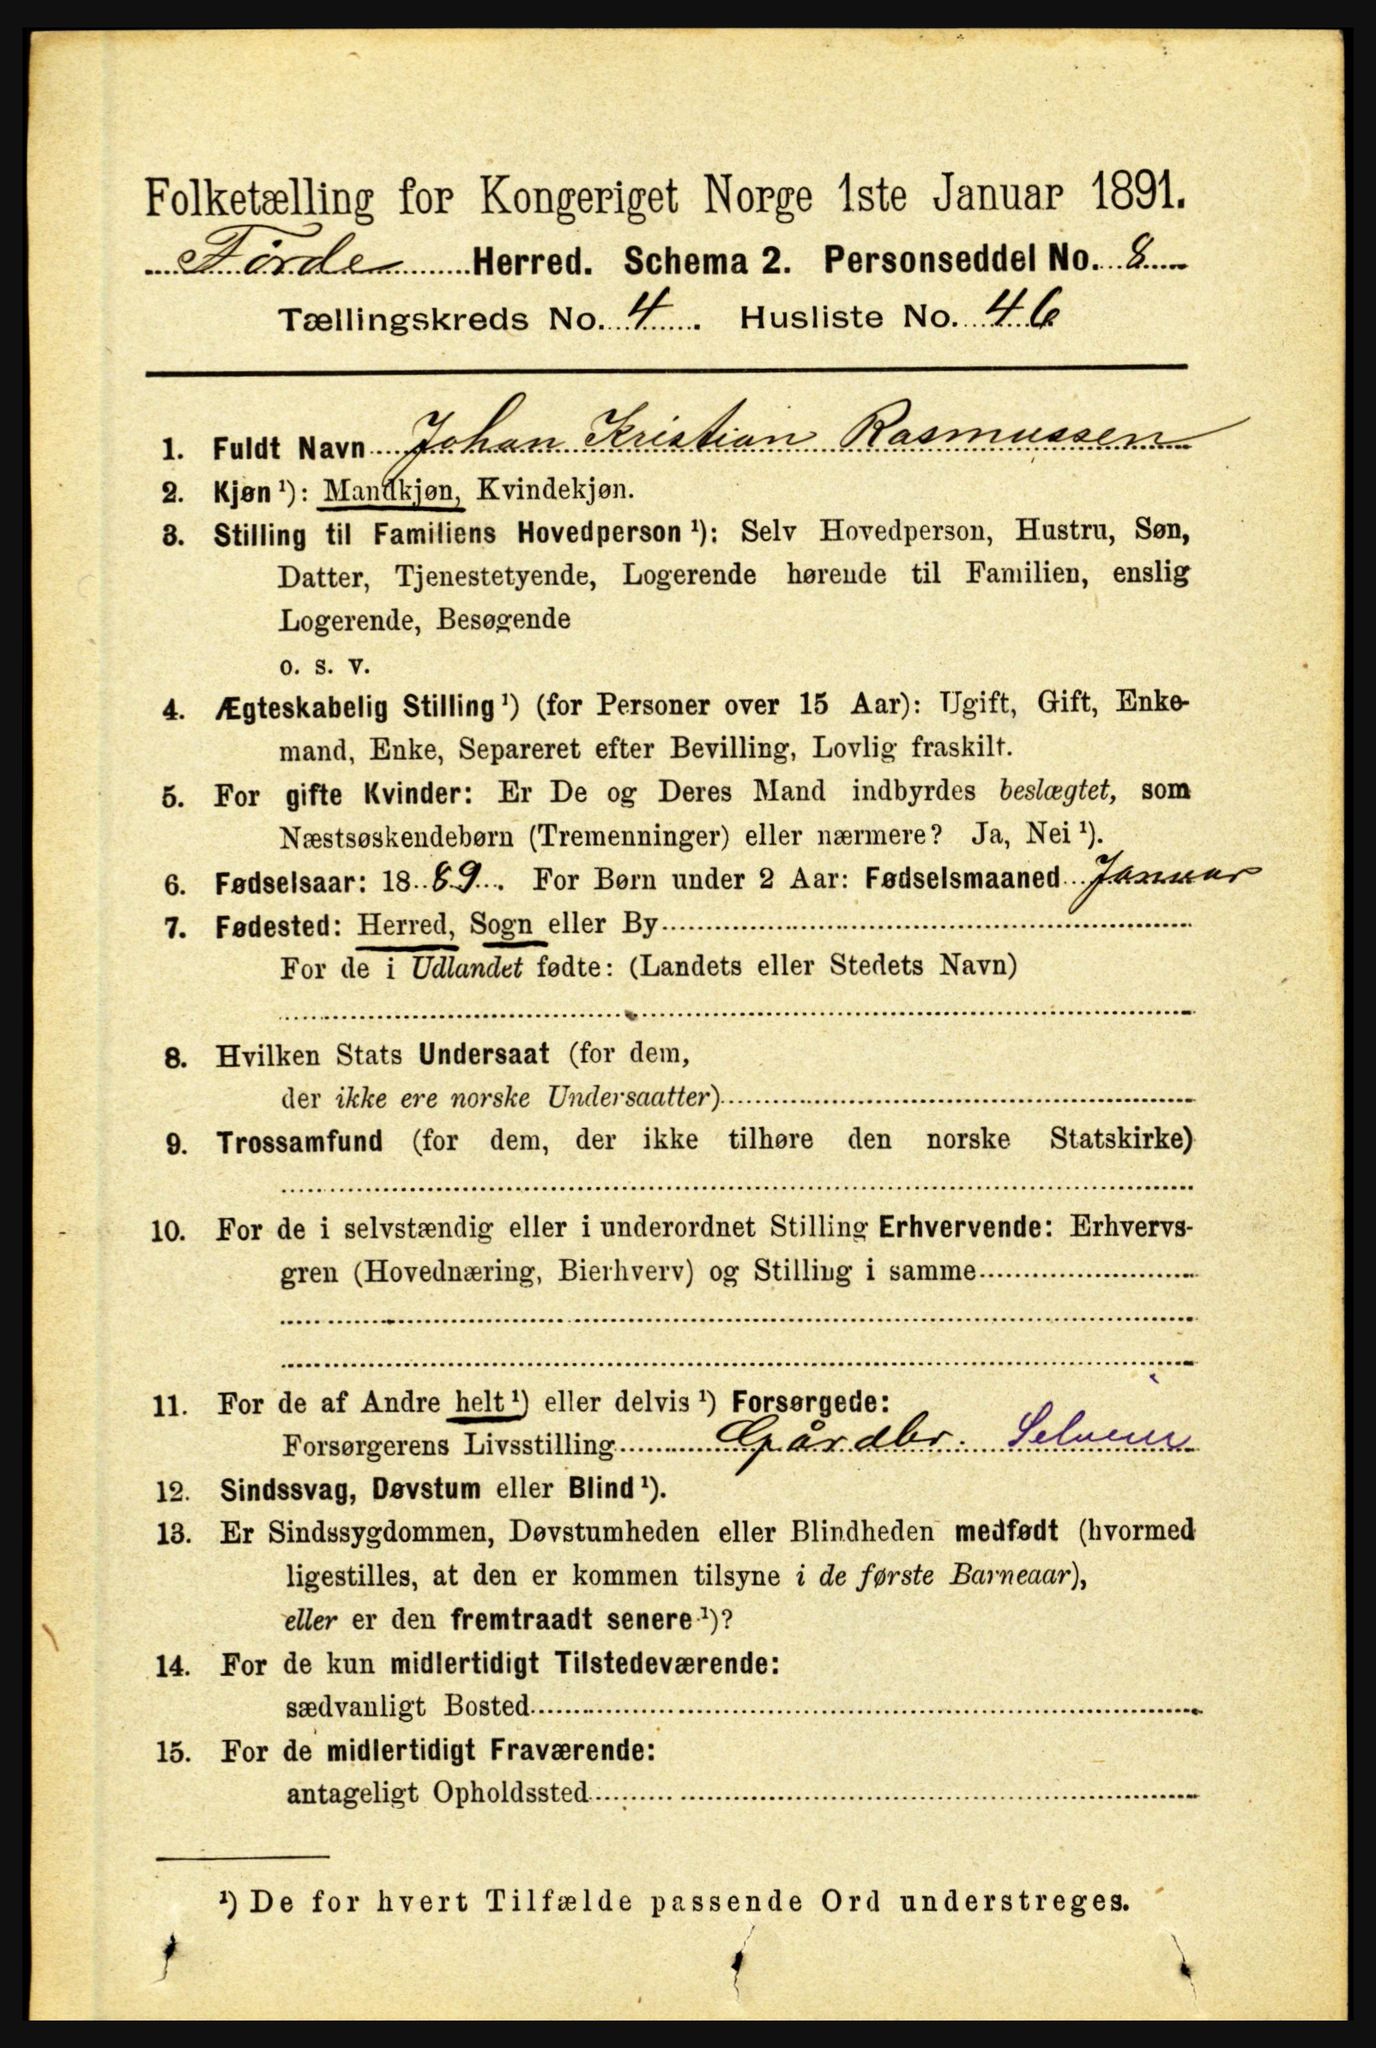 Folketælling for Kongeriget Norge 1ste Januar 1891.
Førde Herred. Schema 2. Personseddel No. 8
Tællingskreds No. 4. Husliste No. 46
1. Fuldt Navn Johan Kristian Rasmussen
2. Kjøn ¹): Mandkjøn, Kvindekjøn.
3. Stilling til Familiens Hovedperson ¹): Selv Hovedperson, Hustru, Søn,
Datter, Tjenestetyende, Logerende hørende til Familien, enslig
Logerende, Besøgende
o. s. v.
4. Ægteskabelig Stilling ¹) (for Personer over 15 Aar): Ugift, Gift, Enke-
mand, Enke, Separeret efter Bevilling, Lovlig fraskilt.
5. For gifte Kvinder: Er De og Deres Mand indbyrdes beslægtet, som
Næstsøskendebørn (Tremenninger) eller nærmere? Ja, Nei ¹).
6. Fødselsaar: 1889. For Børn under 2 Aar: Fødselsmaaned Januar
7. Fødested: Herred, Sogn eller By
For de i Udlandet fødte: (Landets eller Stedets Navn)
8. Hvilken Stats Undersaat (for dem,
der ikke ere norske Undersaatter)
9. Trossamfund (for dem, der ikke tilhøre den norske Statskirke)
10. For de i selvstændig eller i underordnet Stilling Erhvervende: Erhvervs-
gren (Hovednæring, Bierhverv) og Stilling i samme
11. For de af Andre helt ¹) eller delvis ¹) Forsørgede:
Forsørgerens Livsstilling Gårdbr. Selveier
12. Sindssvag, Døvstum eller Blind ¹).
13. Er Sindssygdommen, Døvstumheden eller Blindheden medfødt (hvormed
ligestilles, at den er kommen tilsyne i de første Barneaar),
eller er den fremtraadt senere ¹)?
14. For de kun midlertidigt Tilstedeværende:
sædvanligt Bosted
15. For de midlertidigt Fraværende:
antageligt Opholdssted
¹) De for hvert Tilfælde passende Ord understreges.